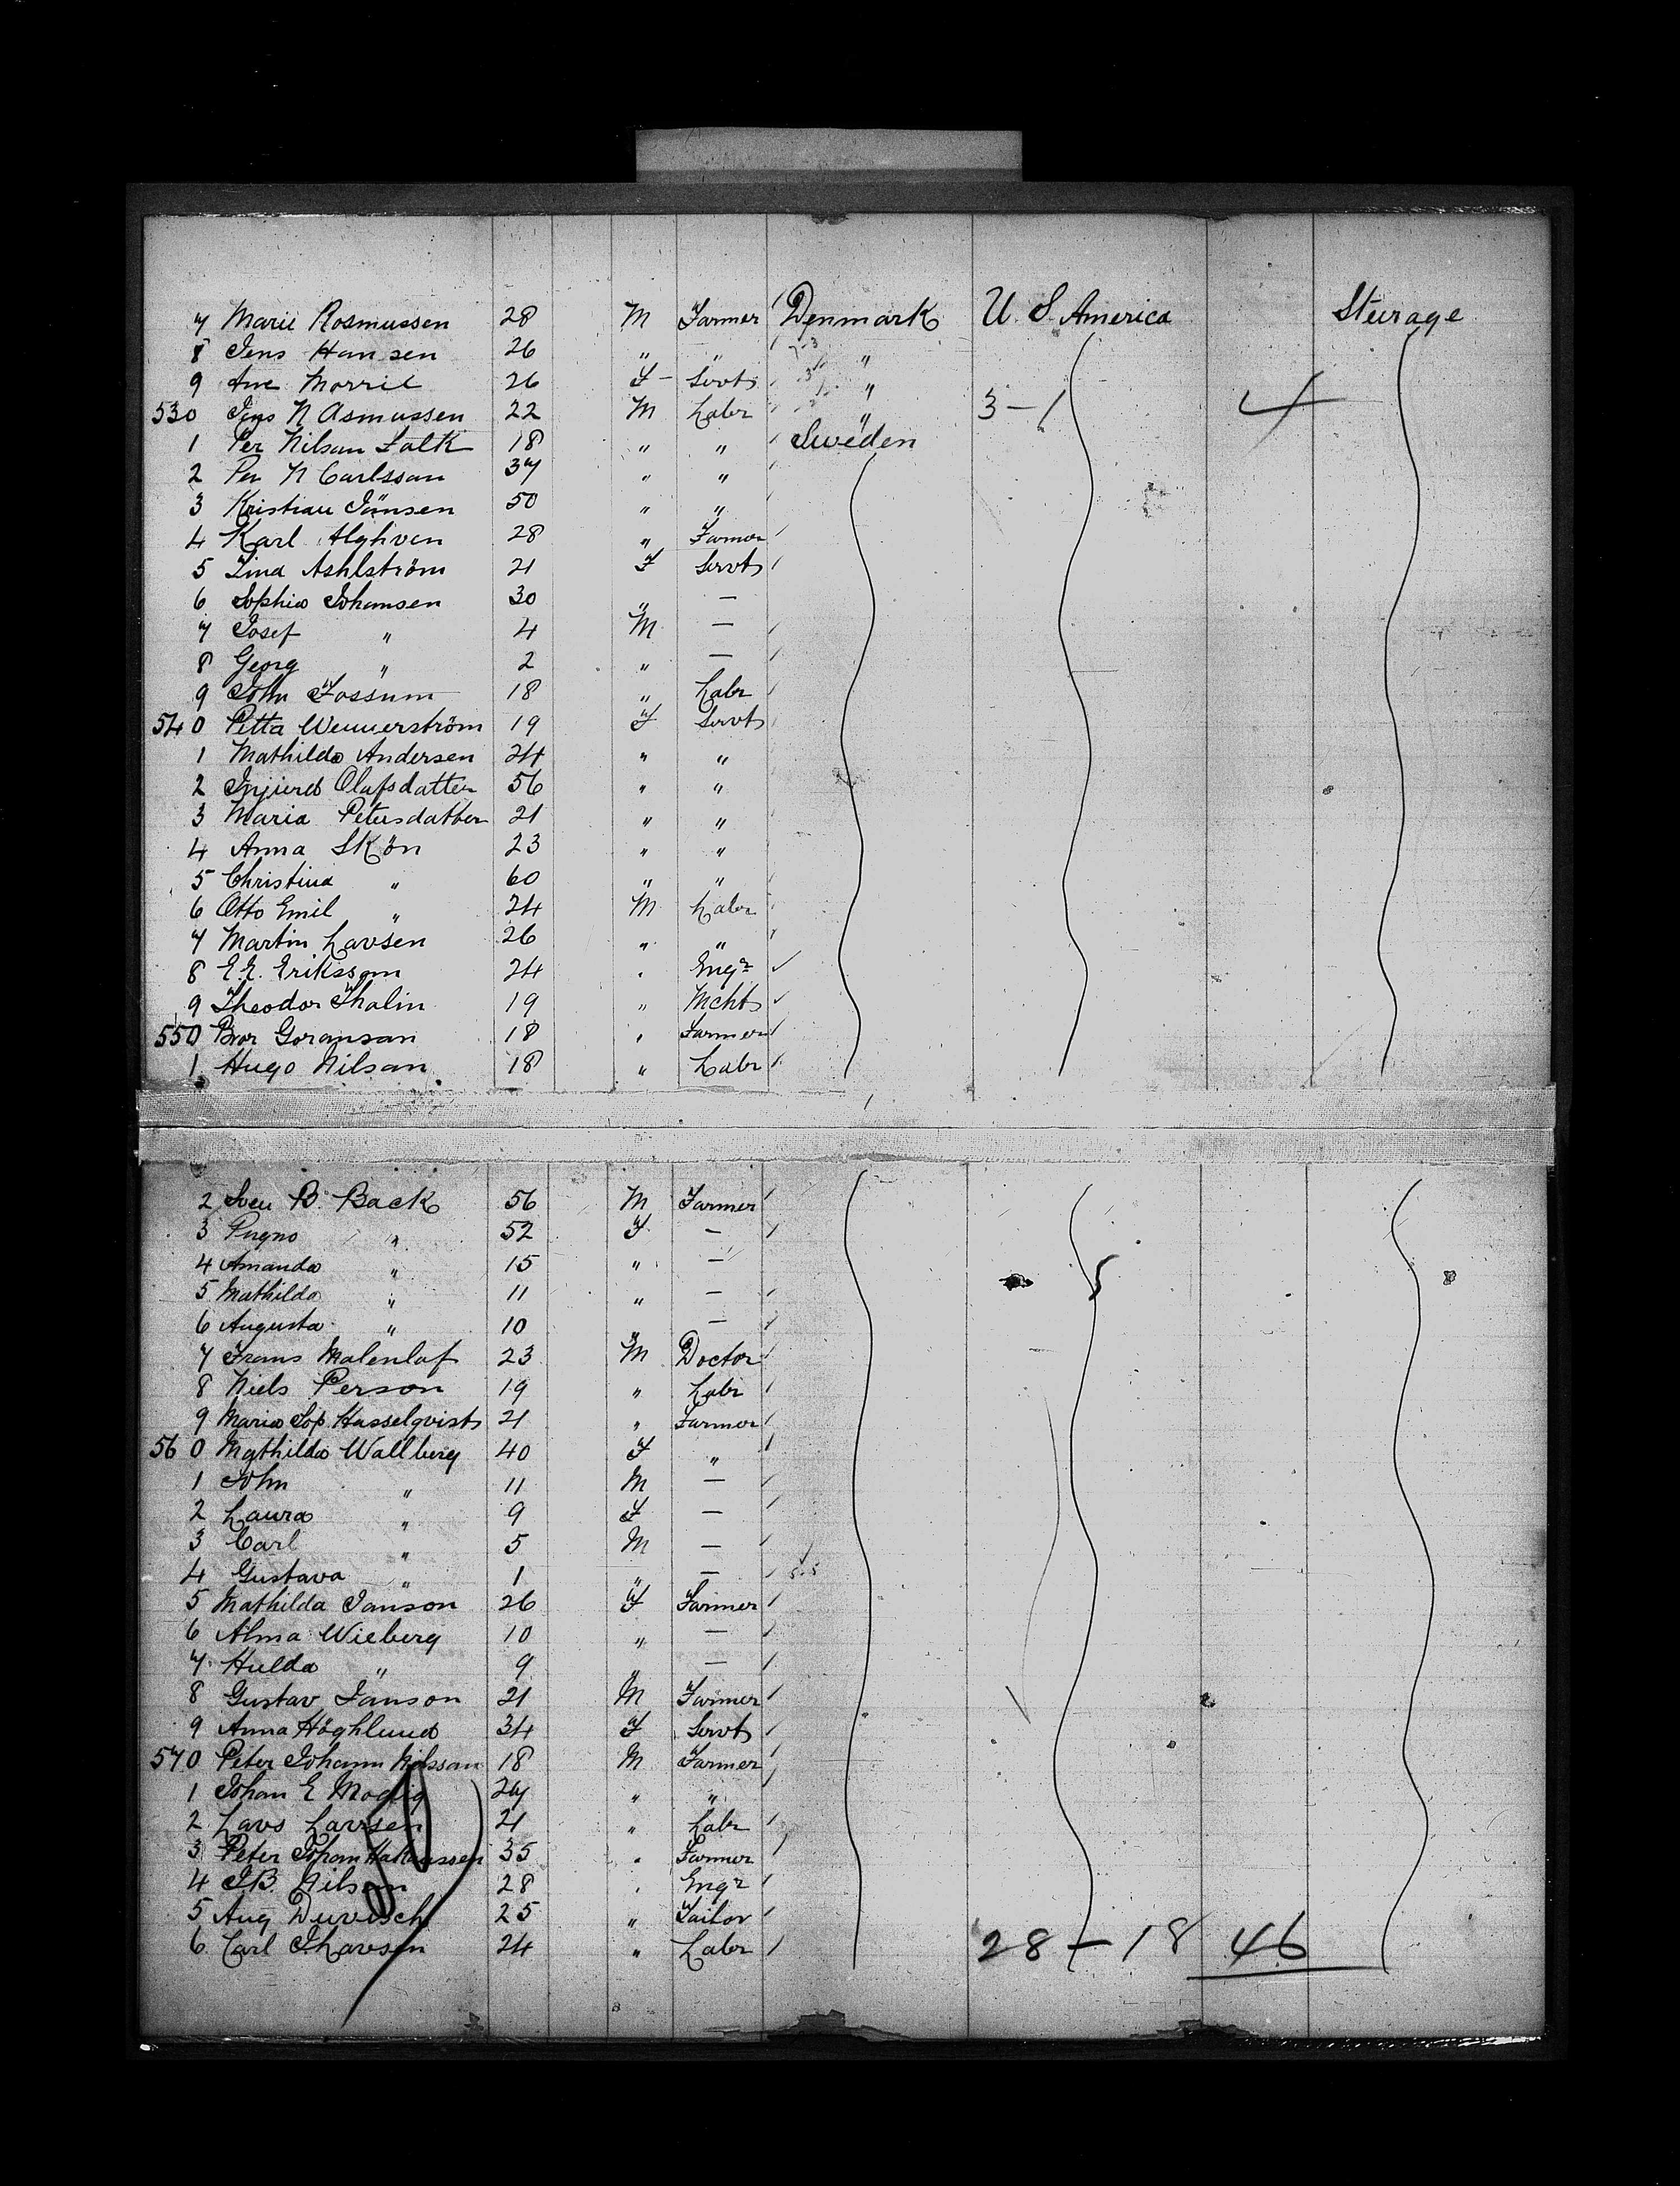 7 Marie Rasmussen 28 M Farmer Denmark U. S. America Steerage
8 Jens Hansen 26 " " "
9 Ane Morril 26 F Servt "
530 Jens N Asmussen 22 M Labr " 3-1 4
1 Per Nilsan Falk 18 " " Sweden
2 Per N Carlssan 37 " "
3 Kristian Jönsen 50 " "
4 Karl Alghven 28 " Farmer
5 Lina Ashlström 21 F Servt
6 Sophia Johansen 30 " —
7 Josef " 4 M —
8 Georg " 2 " —
9 John Fossum 18 " Labr
540 Petta Wennerström 19 F Servt
1 Mathilda Andersen 24 " "
2 Olafsdatter 56 " "
3 Maria Petersdatter 21 " "
4 Anna Skön 23 " "
5 Christina " 60 " "
6 Otto Emil " 24 M Labr
7 Martin Larsen 26 " "
8 E. E. Erikssom 24 " Engr
9 Theodor Thalin 19 " Mcht
550 Bror Goransan 18 " Farmer
1 Hugo Nilsan 18 " Labr
2 Sven B. Back 56 M Farmer
3 " 52 F —
4 Amanda " 15 " —
5 Mathilda " 11 " —
6 Augusta " 10 " —
7 Frans Malenlaf 23 M Doctor
8 Niels Person 19 " Labr
9 Maria Sop. Hasselqvist 21 " Farmer
560 Mathilda Wallberg 40 F "
1 John " 11 M —
2 Laura " 9 F —
3 Carl " 5 M —
4 Gustava " 1 " —
5 Mathilda Janson 26 F Farmer
6 Alma Wieberg 10 " —
7 Hulda " 9 " —
8 Gustav Janson 21 M Farmer
9 Anna Höghlund 34 F Servt
570 Peter Johann Nilssan 18 M Farmer
1 Johan E Modig 24 " "
2 Lars Larsen 21 " Labr
3 Peter Johan Hakanssen 35 " Farmer
4 J.B. Nilsan 28 " Engr
5 Aug 25 " Tailor
6 Carl Tharsen 24 " Labr 28-18 46